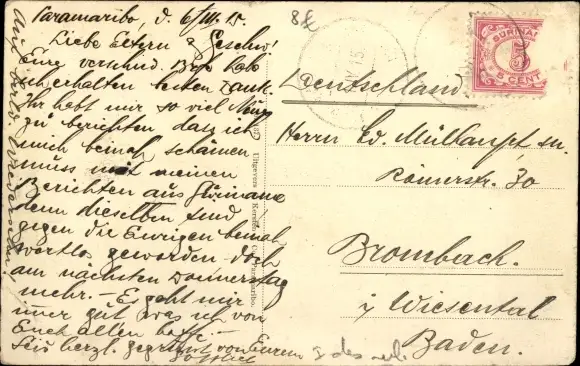 Paramaribo, d. 6/III. 15.
Liebe Eltern & Geschw!
Eure verschied. Brfe habe
ich erhalten besten Dank.
Ihr habt mir so viel Neues
zu berichten dasz ich
mich beinah schämen
muss mit meinen
Berichten aus Suriname
denn dieselben sind
gegen die Eurigen beinah
wertlos geworden doch
am nächsten Donnerstag
mehr. – Es geht mir
immer gut was ich von
Euch allen hoffe.
Seid herzl. gegrüsst von Eurem
8
SURINAME
5 CENT
Deutschland
Herrn Ed. Müllanpt sen.
Römerstr. 30
Brombach.
i/ Wiesental
Baden.